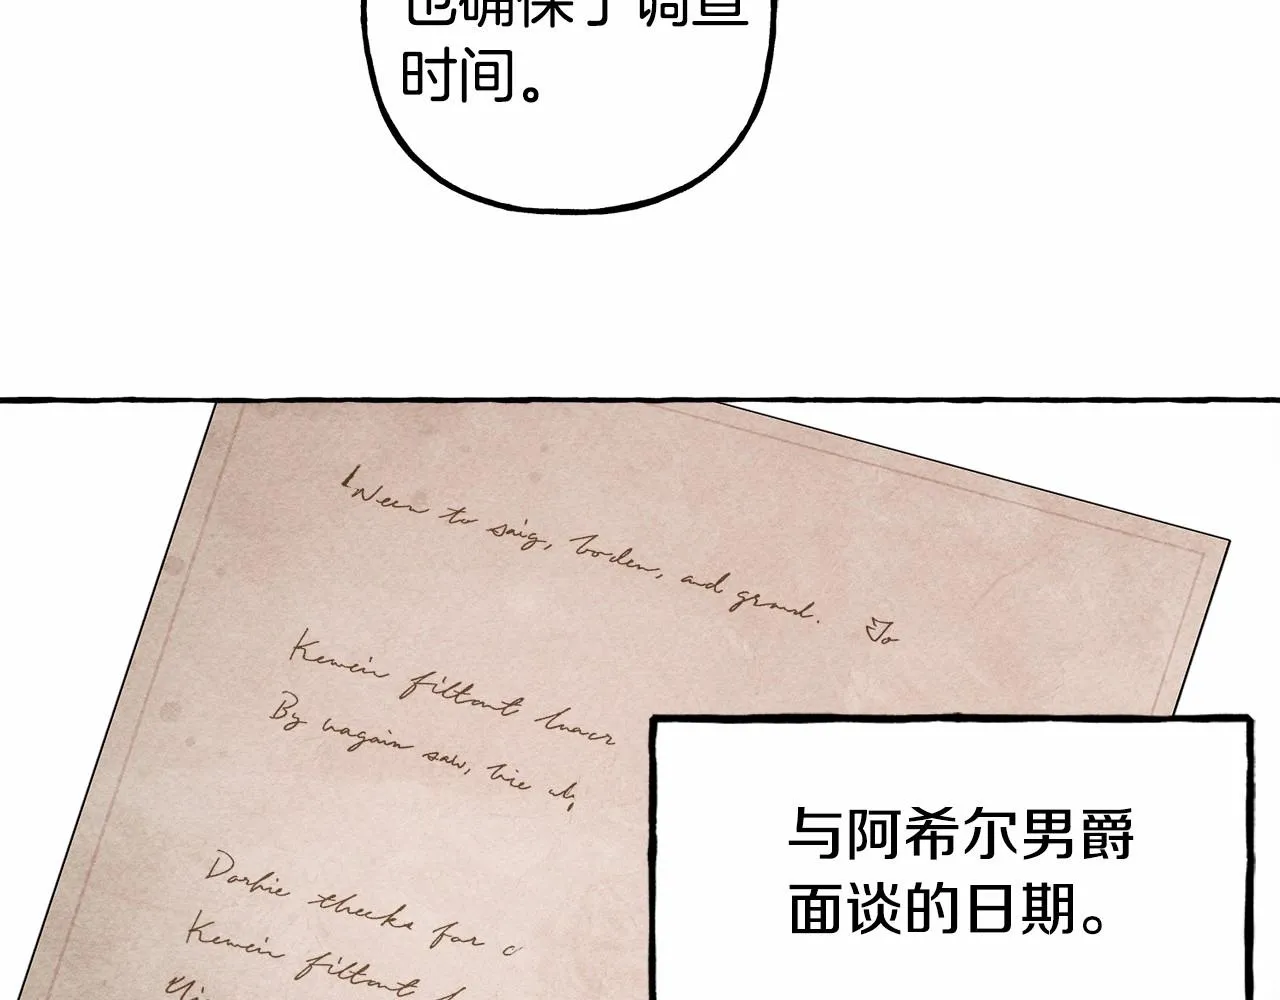 也确保了调查
时间。
Neen to saig, boden, and grand. To
Kewein filtont
By vagain saw, hie
Darhie thecks for
Kewein filtont
与阿希尔男爵
面谈的日期。